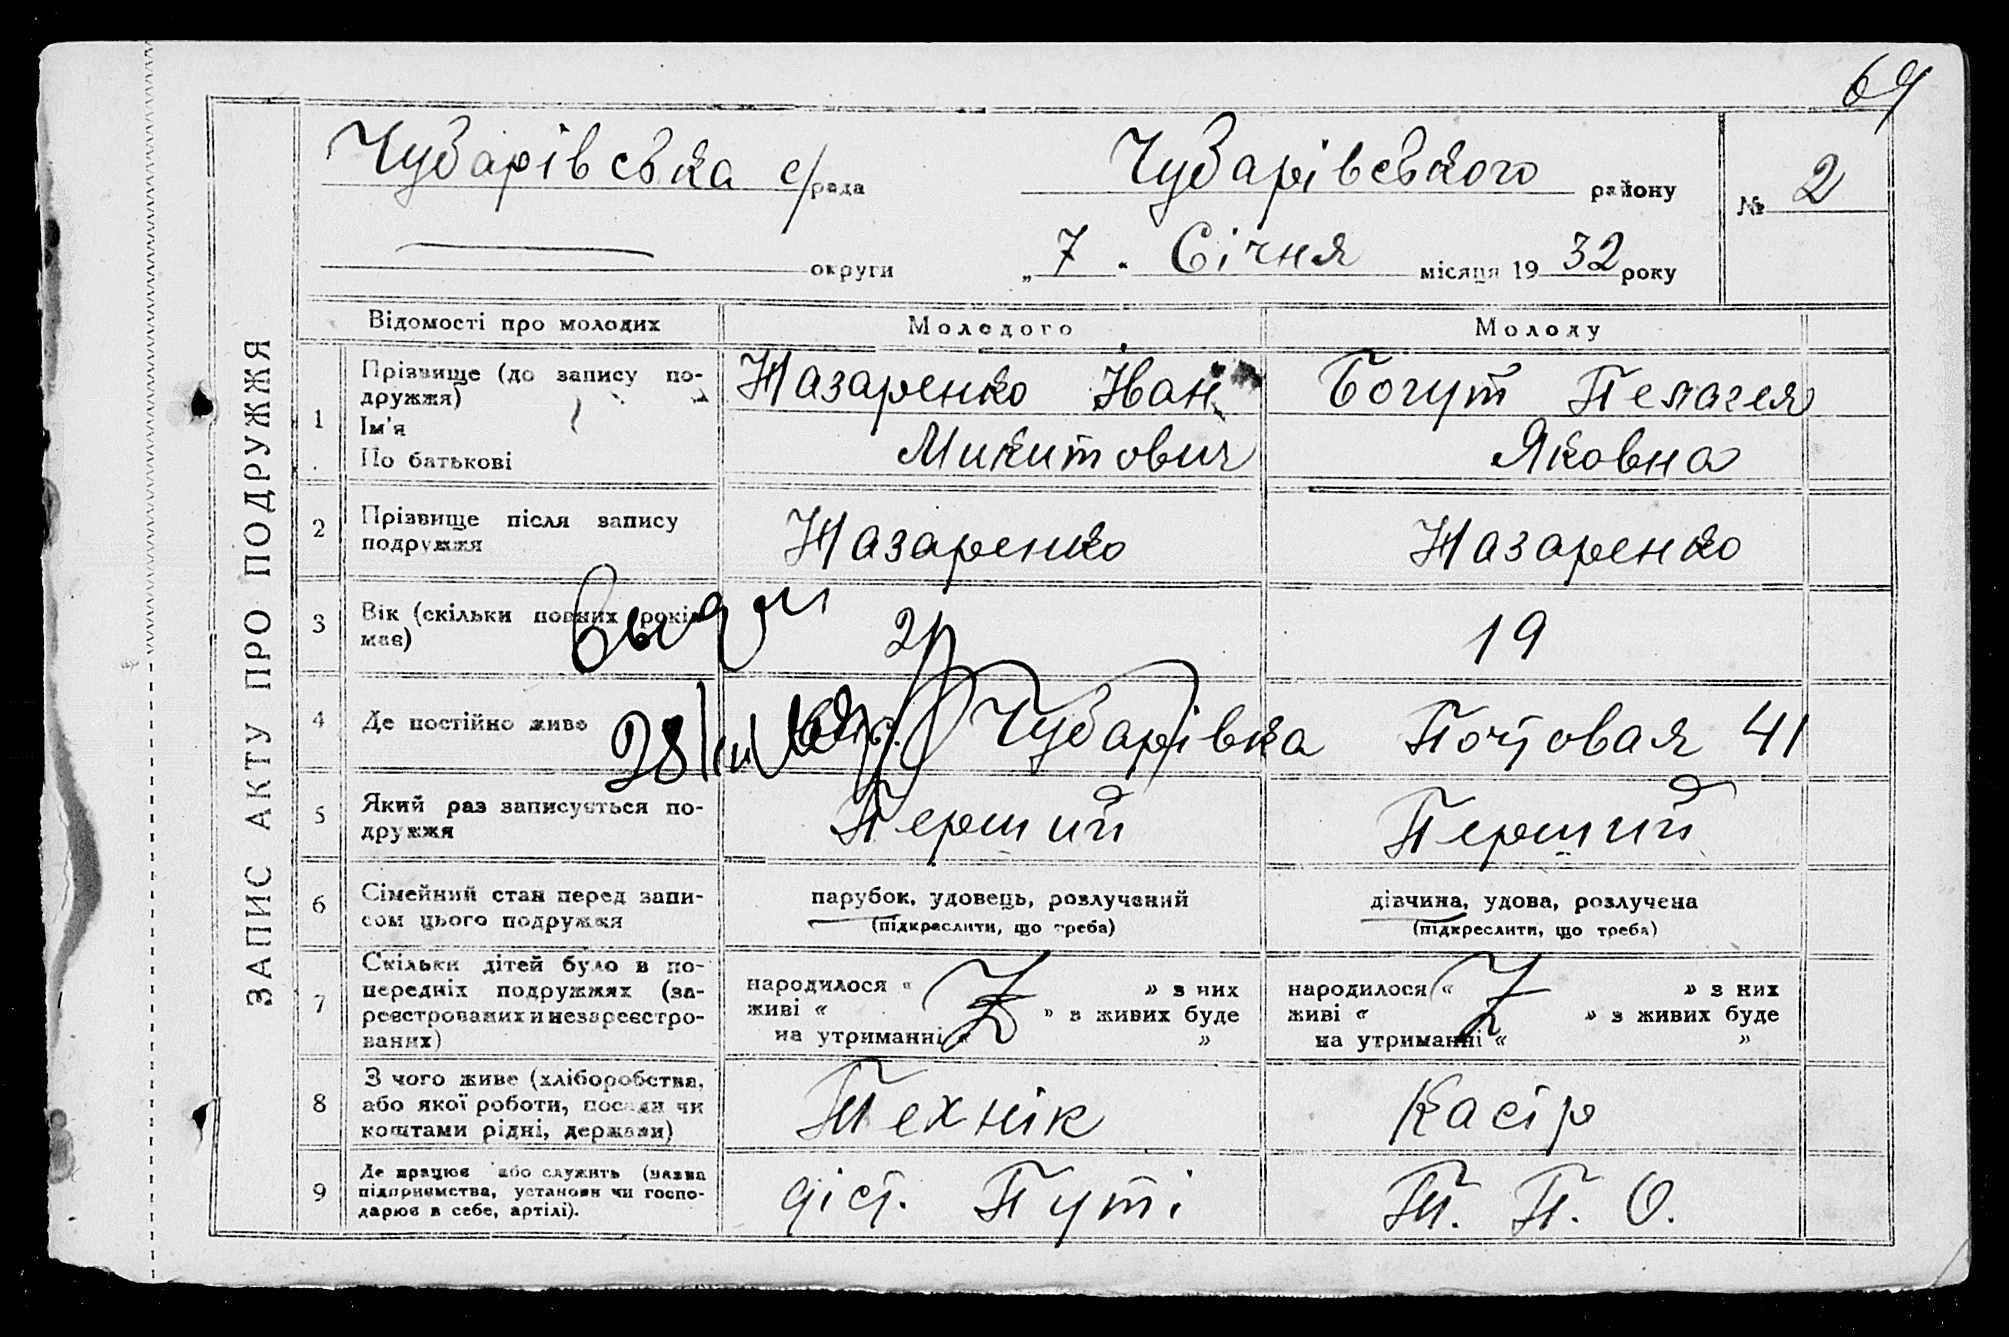 69
ЗАПИС АКТУ ПРО ПОДРУЖЖЯ
Чубарівська с/рада Чубарівського району № 2
округи „ 7 " Січня місяця 19 32 року
Відомості про молодих Молодого Молоду
1 Прізвище (до запису по-
дружжя)
Ім'я
По батькові
Назаренко Іван
Микитович
Богут Пелагея
Яковна
2 Прізвище після запису
подружжя
Назаренко Назаренко
3 Вік (скільки повних років
має)
19
4 Де постійно живе
28
Чубарівка Почтовая 41
5 Який раз записується по-
дружжя
Перший Перший
6 Сімейний стан перед запи-
сом цього подружжя
парубок, удовець, розлучений
(підкреслити, що треба)
дівчина, удова, розлучена
(підкреслити, що треба)
7 Скільки дітей було в по-
передніх подружжях (за-
реєстрованих и незареєстро-
ваних)
народилося " » з них
живі « » з живих буде
на утриманні « »
народилося « » з них
живі « » з живих буде
на утриманні « »
8 З чого живе (хліборобства,
або якої роботи, посади чи
коштами рідні, держави)
Технік Касір
9 Де працює або служить (назва
підприємства, установи чи госпо-
дарює в себе, артілі).
діст. Путі Т. П. О.